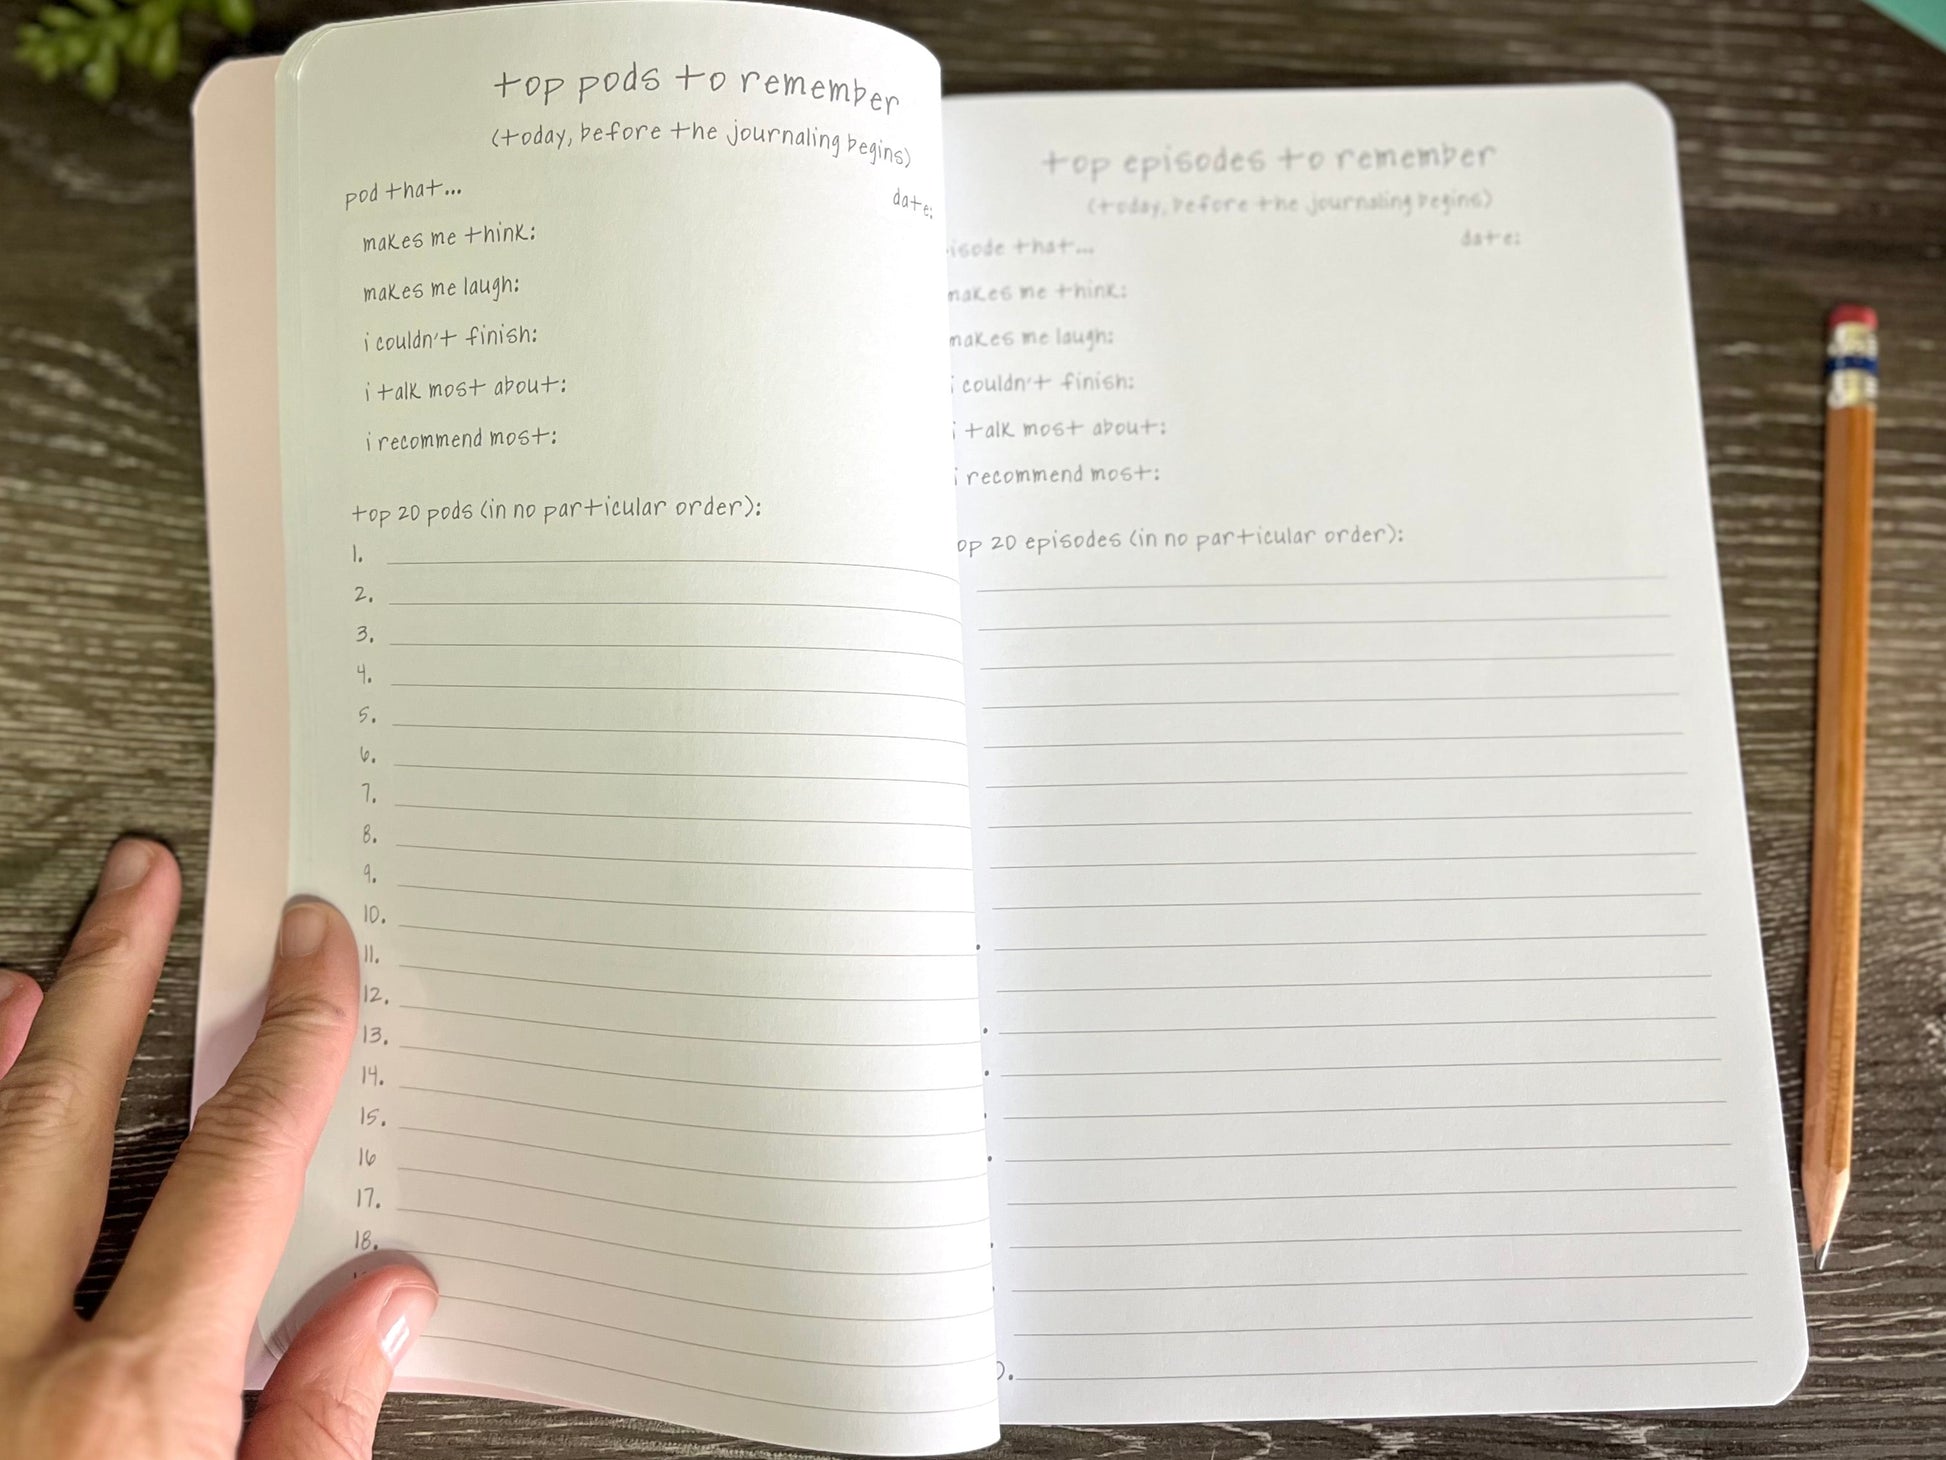 top pods to remember
(today, before the journaling begins)
pod that...
date:
makes me think:
makes me laugh:
i couldn't finish:
i talk most about:
i recommend most:
top 20 pods (in no particular order):
1.
2.
3.
4.
5.
6.
7.
8.
9.
10.
11.
12.
13.
14.
15.
16
17.
18.
top episodes to remember
(today, before the journaling begins)
isode that...
date:
makes me think:
makes me laugh:
i couldn't finish:
i talk most about:
i recommend most:
op 20 episodes (in no particular order):